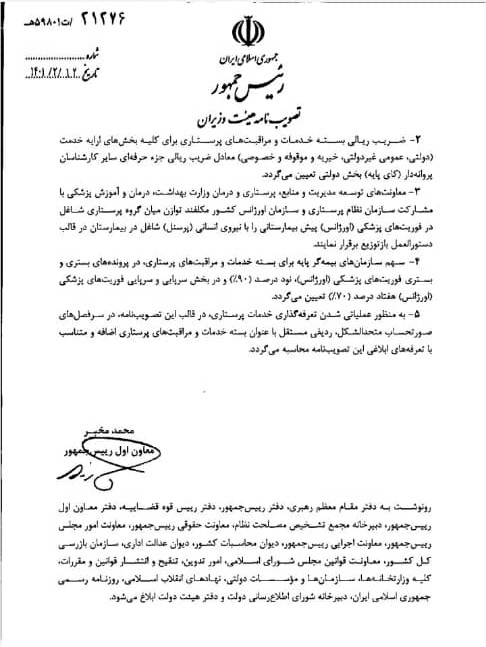 ۲۱۲۷۶ /ت۵۹۸۰۱هـ
شماره
تاریخ ۱۴۰۱/۲/۱۲
جمهوری اسلامی ایران
رئیس جمهور
تصویب نامه هیئت وزیران
۲- ضریب ریالی بسته خدمات و مراقبت‌های پرستاری برای کلیه بخش‌های ارایه خدمت
(دولتی، عمومی غیردولتی، خیریه و موقوفه و خصوصی) معادل ضریب ریالی جزء حرفه‌ای سایر کارشناسان
پروانه‌دار (کای پایه) بخش دولتی تعیین می‌گردد.
۳- معاونت‌های توسعه مدیریت و منابع، پرستاری و درمان وزارت بهداشت، درمان و آموزش پزشکی با
مشارکت سازمان نظام پرستاری و سازمان اورژانس کشور مکلفند توازن میان گروه پرستاری شاغل
در فوریت‌های پزشکی (اورژانس) پیش بیمارستانی را با نیروی انسانی (پرسنل) شاغل در بیمارستان در قالب
دستورالعمل بازتوزیع برقرار نمایند.
۴- سهم سازمان‌های بیمه‌گر پایه برای بسته خدمات و مراقبت‌های پرستاری، در پرونده‌های بستری و
بستری فوریت‌های پزشکی (اورژانس)، نود درصد (۹۰٪) و در بخش سرپایی و سرپایی فوریت‌های پزشکی
(اورژانس) هفتاد درصد (۷۰٪) تعیین می‌گردد.
۵- به منظور عملیاتی شدن تعرفه‌گذاری خدمات پرستاری، در قالب این تصویب‌نامه، در سرفصل‌های
صورتحساب متحدالشکل، ردیفی مستقل با عنوان بسته خدمات و مراقبت‌های پرستاری اضافه و متناسب
با تعرفه‌های ابلاغی این تصویب‌نامه محاسبه می‌گردد.
محمد مخبر
معاون اول رییس‌جمهور
رونوشت به دفتر مقام معظم رهبری، دفتر رییس‌جمهور، دفتر رییس قوه قضاییه، دفتر معاون اول
رییس‌جمهور، دبیرخانه مجمع تشخیص مصلحت نظام، معاونت حقوقی رییس‌جمهور، معاونت امور مجلس
رییس‌جمهور، معاونت اجرایی رییس‌جمهور، دیوان محاسبات کشور، دیوان عدالت اداری، سازمان بازرسی
کل کشور، معاونت قوانین مجلس شورای اسلامی، امور تدوین، تنقیح و انتشار قوانین و مقررات،
کلیه وزارتخانه‌ها، سازمان‌ها و مؤسسات دولتی، نهادهای انقلاب اسلامی، روزنامه رسمی
جمهوری اسلامی ایران، دبیرخانه شورای اطلاع‌رسانی دولت و دفتر هیئت دولت ابلاغ می‌شود.